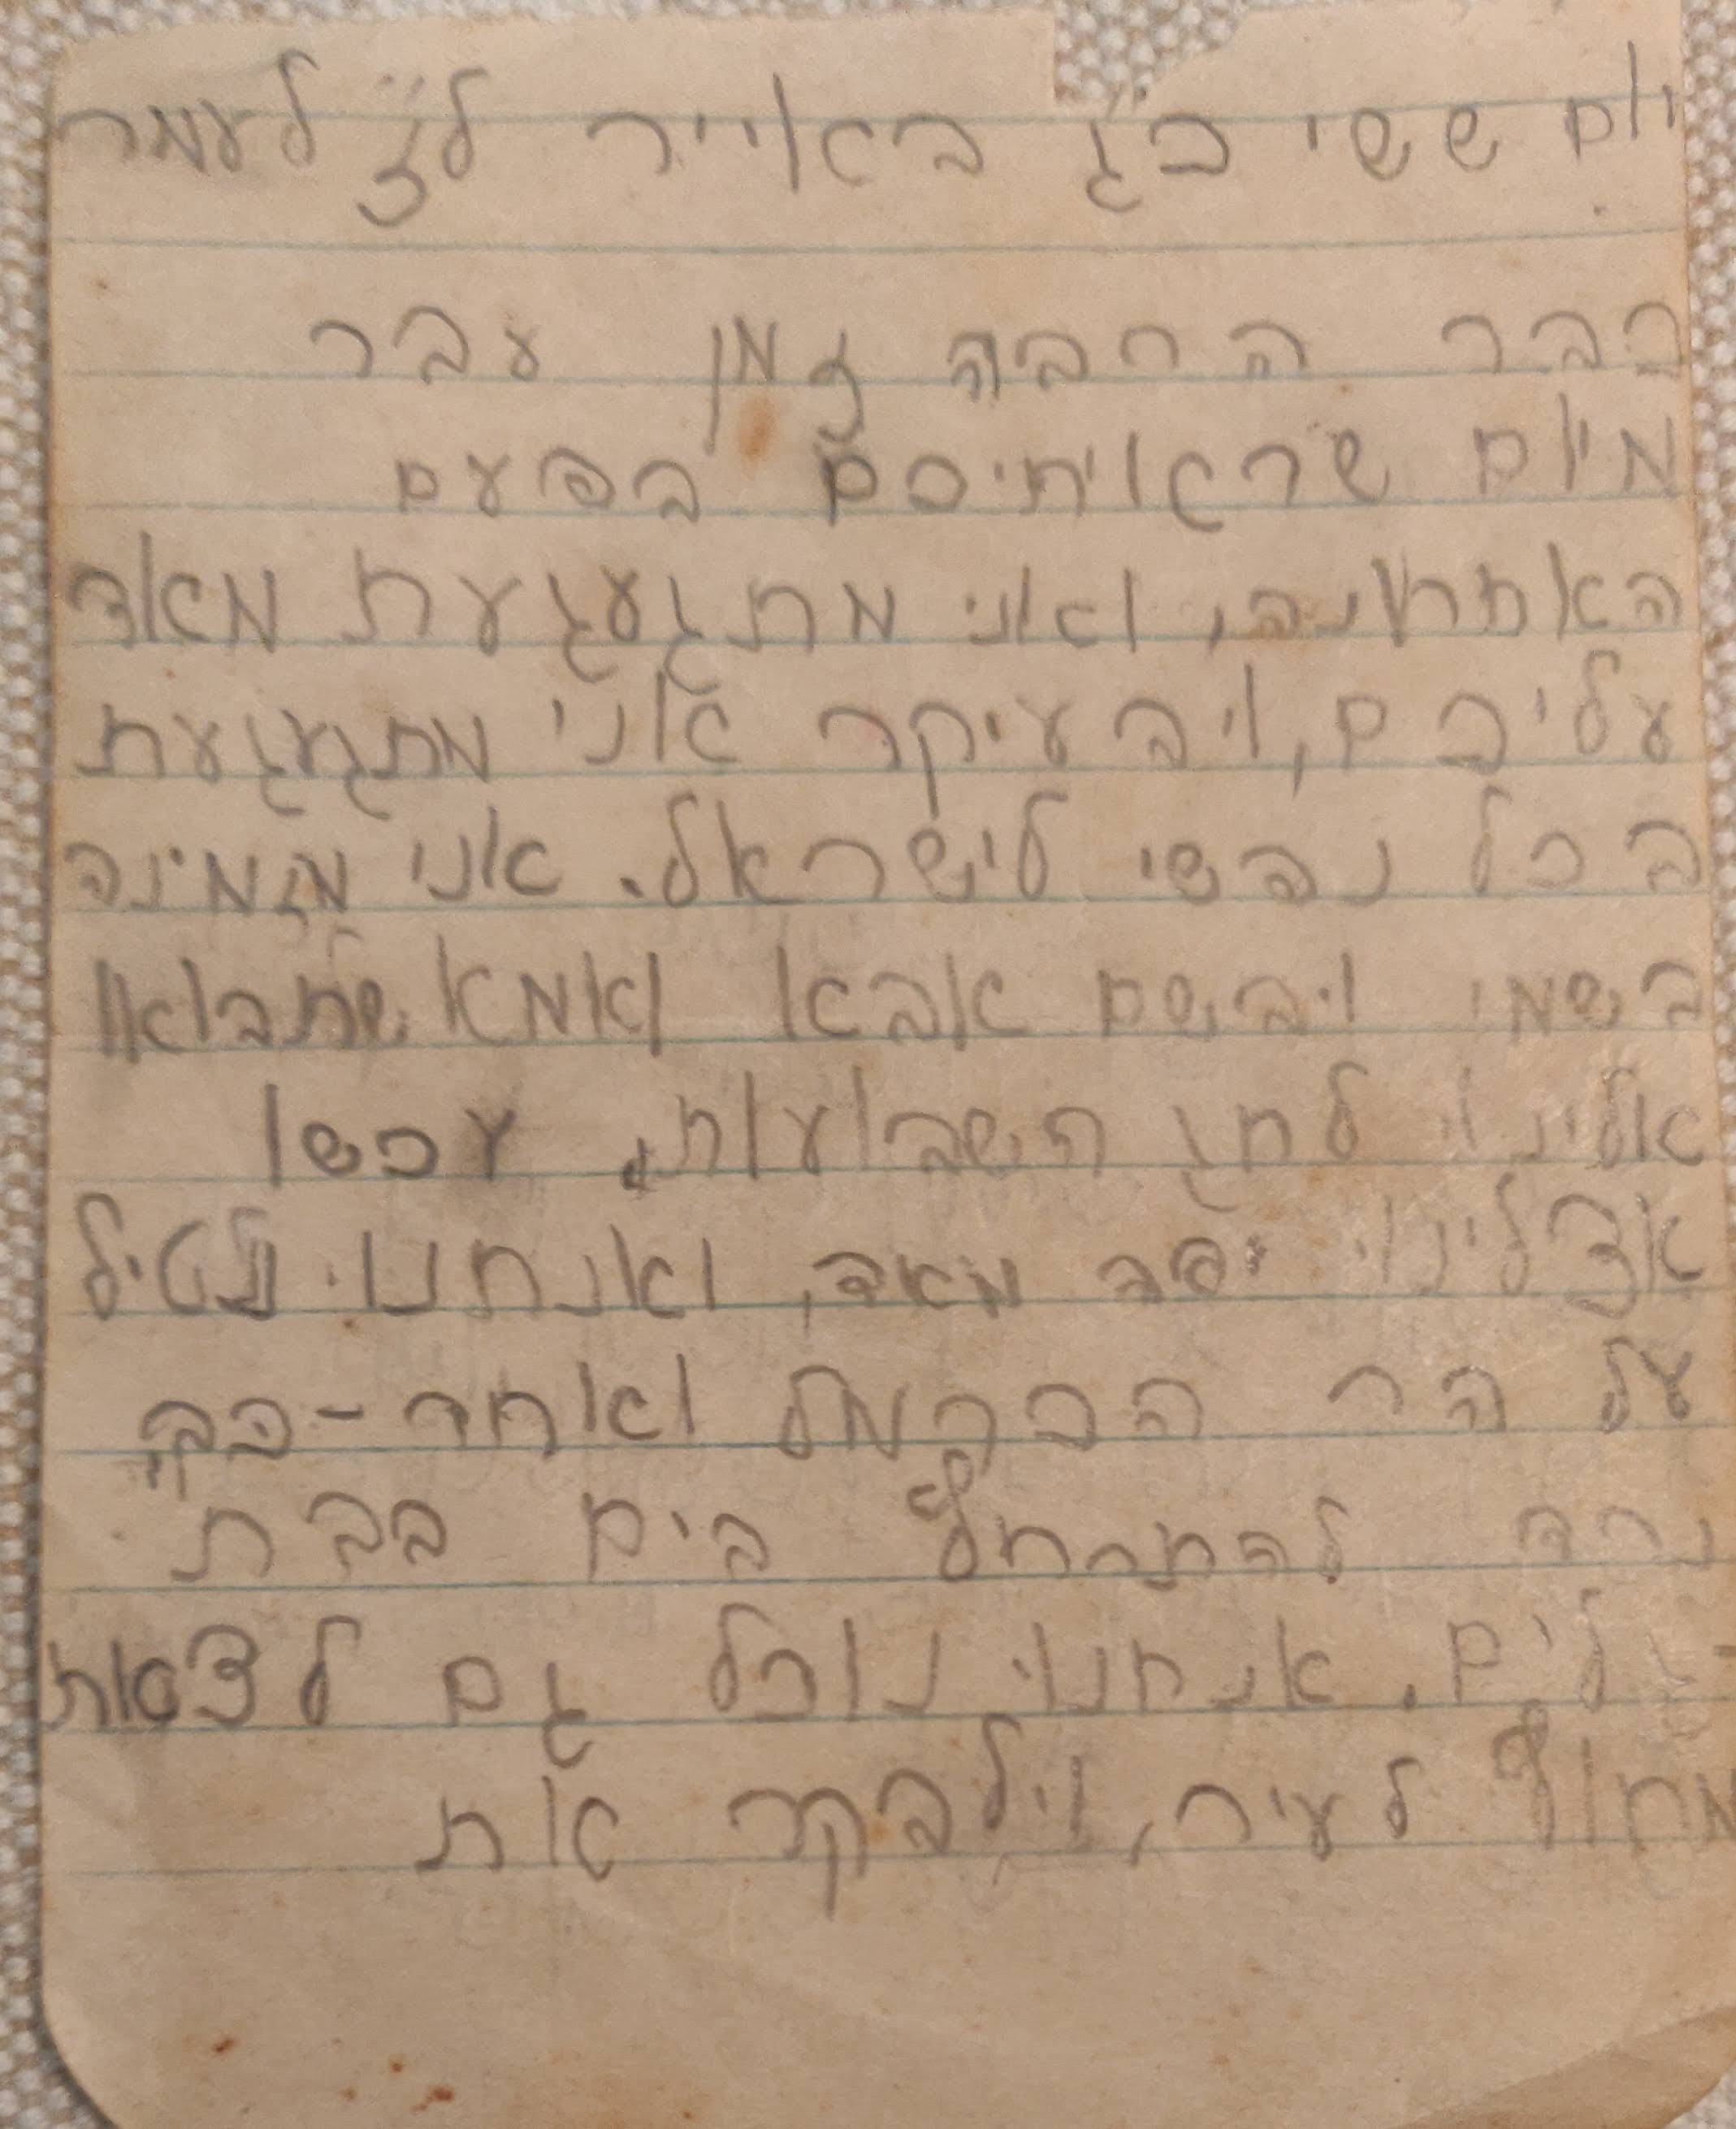 יום ששי כ"ג באייר ל"ז לעמר
כבר הרבה זמן עבר
מיום שראיתיכם בפעם
האחרונה, ואני מתגעגעת מאוד
עליכם, ובעיקר אני מתגעגעת
בכל נפשי לישראל. אני מזמינה
בשמי ובשם אבא ואמא שתבואו
אלינו לחג השבועות. עכשו
אצלינו יפה מאד, ואנחנו נטיל
על הר הכרמל ואחר-כך
נרד להתרחץ בים בבת
-גלים. אנחנו נוכל גם לצאת
מחוץ לעיר, ולבקר את